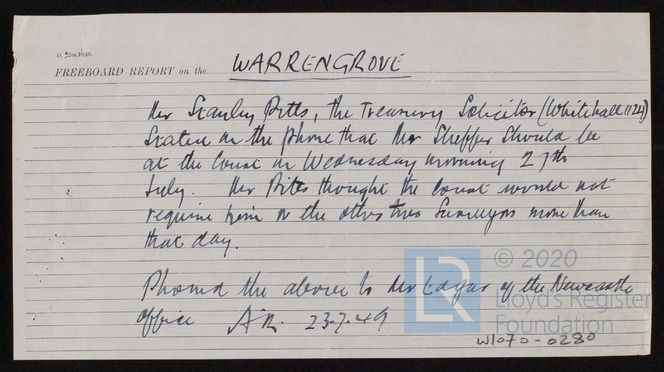 FREEBOARD REPORT on the WARRENGROVE
Mr Stanley Pitts, the Treasury Solicitor (Whitehall 1124)
stated on the phone that Mr Shepper should be
at the Court on Wednesday morning 27th
July. Mr Pitts thought the Court would not
require him or the other two Surveyors more than
that day.
Phoned the above to Mr Edgar of the Newcastle
office 23-7-49
© 2020
LR
Lloyd's Register
Foundation
W1070-0280